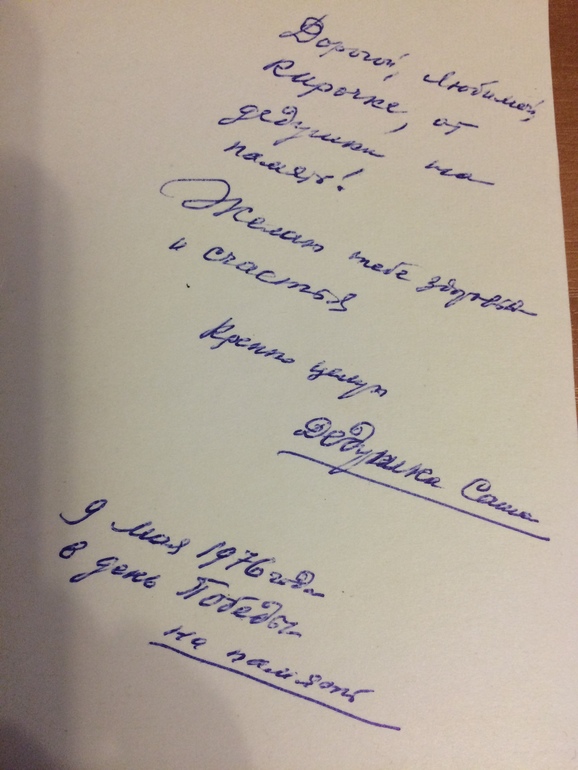 Дорогой, любимой,
Кирочке, от
дедушки на
память!
Желаю тебе здоровья
и счастья
Крепко целую
Дедушка Саша
9 мая 1976 года
в день Победы
на память